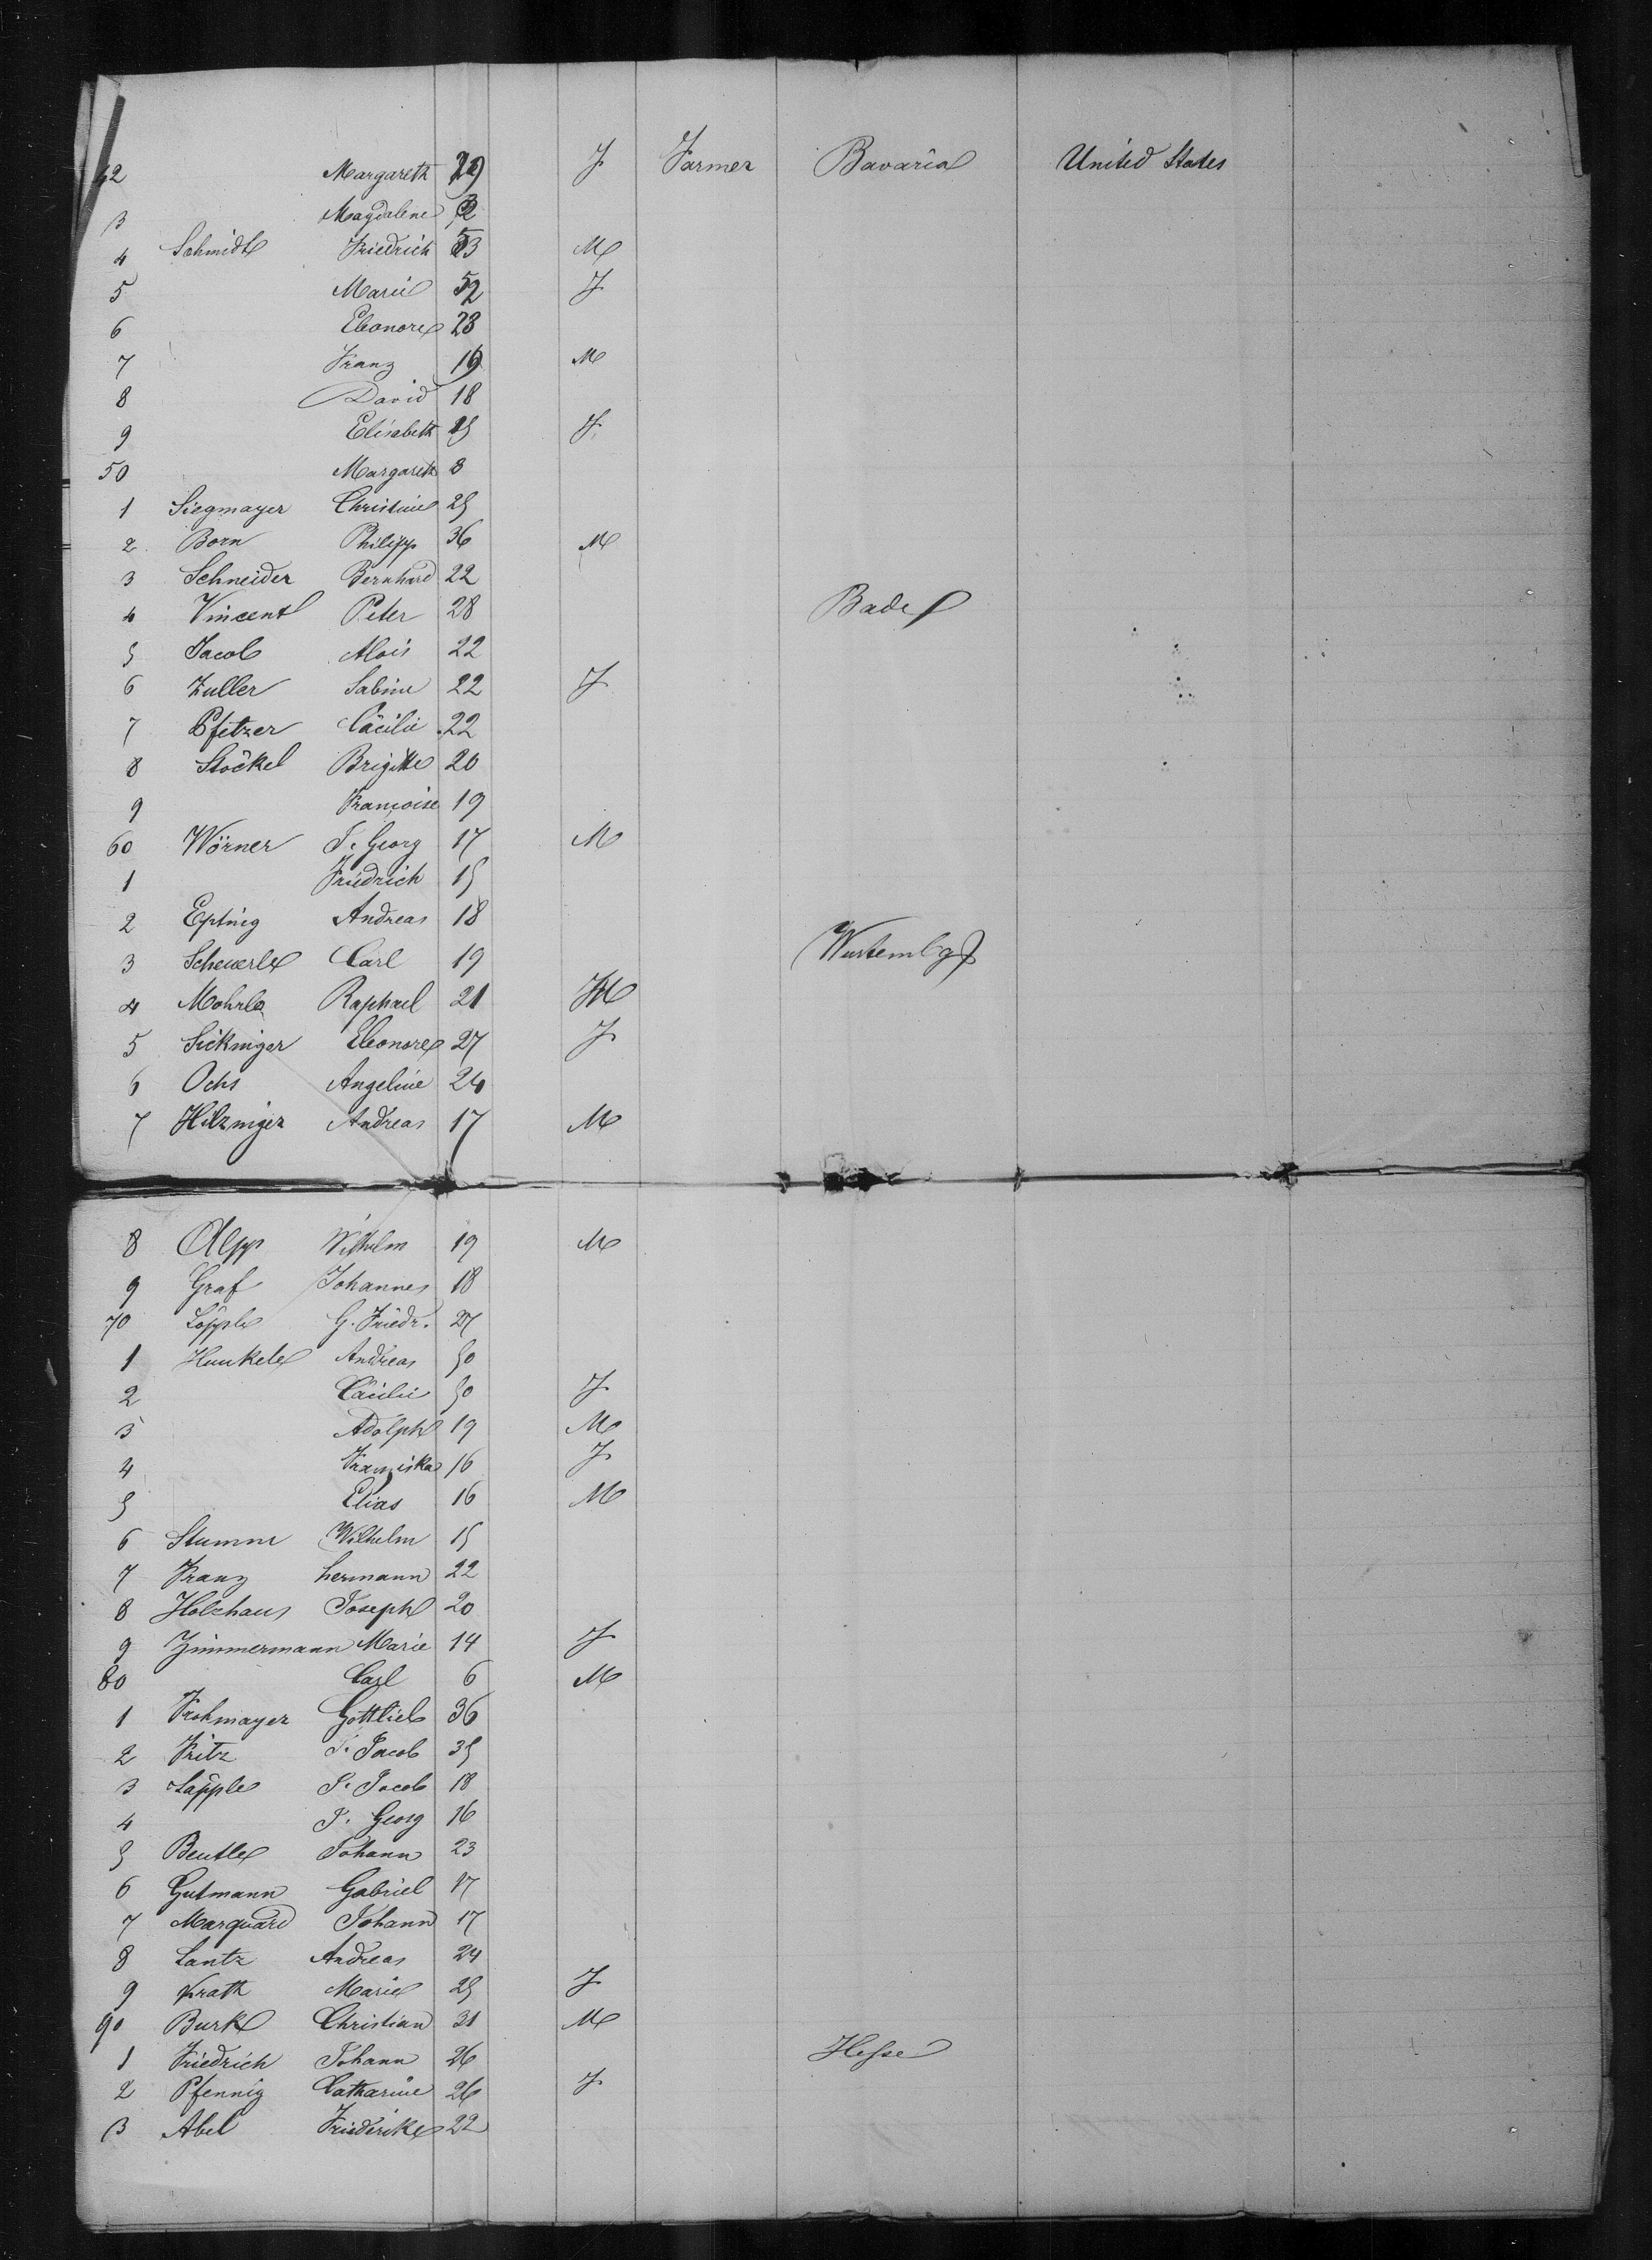 42 Margareth 29 F Farmer Bavaria United States
3 Magdalene
4 Schmidt Friedrich 53 M
5 Marie 52 F
6 Eleonore 23
7 Franz 19 M
8 David 18
9 Elisabeth 15 F
50 Margareth 8
1 Siegmayer Christine 25
2 Born Philipp 36 M
3 Schneider Bernhard 22
4 Vincent Peter 28 Bade
5 Jacob Alois 22
6 Zuller Sabine 22 F
7 Pfitzer Cäcilie 22
8 Stöckel Brigitte 20
9 Françoise 19
60 Wörner J. Georg 17 M
1 Friedrich 15
2 Epting Andreas 18
3 Scheuerle Carl 19 Wurtembg
4 Mohrle Raphael 21 M
5 Sickinger Eleonore 27 F
6 Ochs Angeline 24
7 Hilzinger Andreas 17 M
8 Alpp Wilhelm 19 M
9 Graf Johannes 18
70 Löpple G. Friedr. 27
1 Hunkele Andreas 50
2 Cäcilie 50 F
3 Adolph 19 M
4 Franziska 16 F
5 Elias 16 M
6 Stumm Wilhelm 15
7 Franz hermann 22
8 Holzhaus Joseph 20
9 Zimmermann Marie 14 F
80 Carl 6 M
1 Frohmayer Gottlieb 36
2 Fritz J. Jacob 35
3 Läpple J. Jacob 18
4 J. Georg 16
5 Beutle Johann 23
6 Gutmann Gabriel 17
7 Marquard Johann 17
8 Lantz Andreas 24
9 Krath Marie 25 F
90 Burk Christian 31 M
1 Friedrich Johann 26 Hesse
2 Pfennig Catharine 26 F
3 Abel Friederike 22